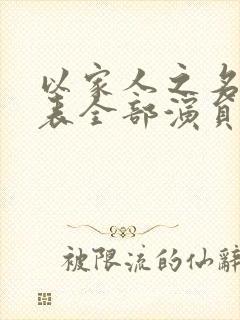 以家人之名
表全部演员
被限流的仙辭